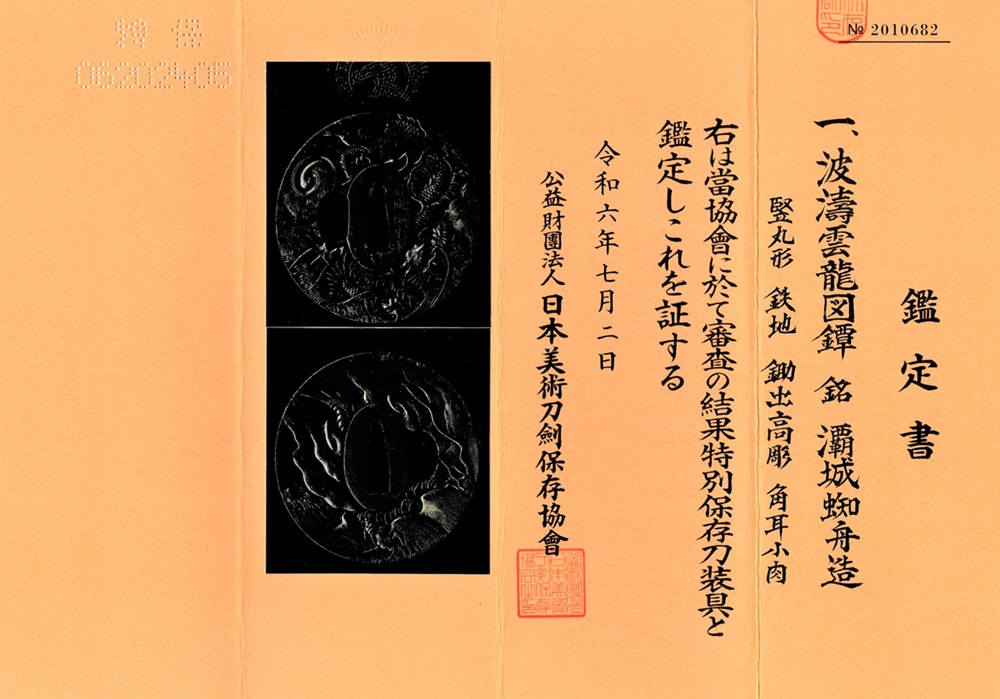 № 2010682
鑑定書
一、波濤雲龍図鐔 銘 灞城蜘舟造
竪丸形 鉄地 鋤出高彫 角耳小肉
右は當協會に於て審査の結果特別保存刀装具と
鑑定しこれを証する
令和六年七月二日
公益財團法人日本美術刀劍保存協會
特保
06202405